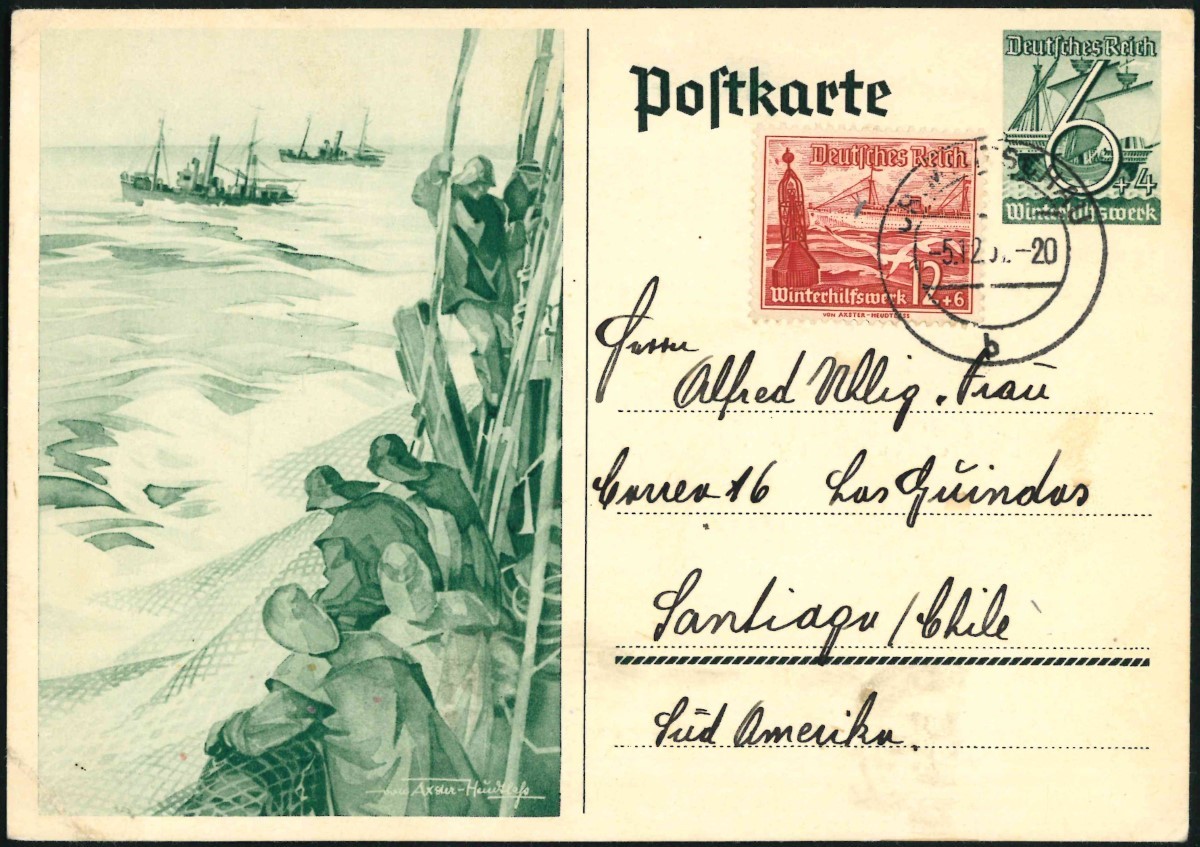 Postkarte
Deutsches Reich
6
+4
Winterhilfswerk
Deutsches Reich
Winterhilfswerk 12+6
VON AXSTER-HEUDTLASS
-5.12.3 -20
b
Herrn
Alfred Uhlig. Frau
Correo 16 Los Guindos
Santiago / Chile
Süd Amerika.
von Axster-Heudtlaß